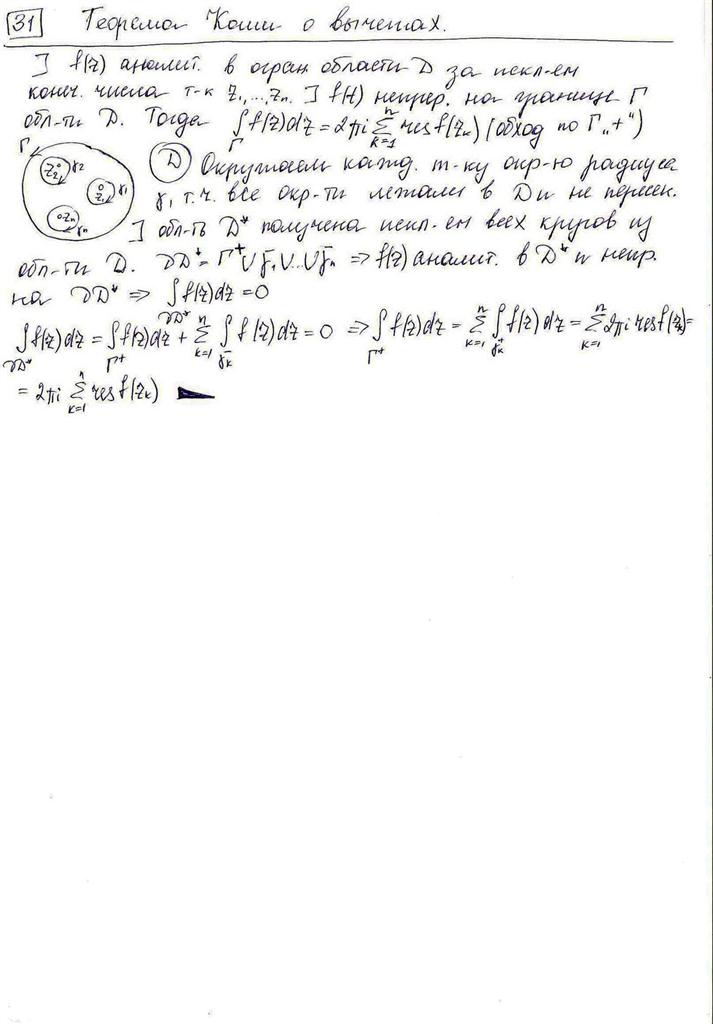 31 Теорема Коши о вычетах.
] f(z) аналит. в огран области D за искл-ем
конеч. числа т-к z₁,...,zₙ. ] f(z) непрер. на границе Γ
обл-ти D. Тогда ∫_Γ f(z)dz = 2πi ∑_{k=1}^{n} res f(z_k) (обход по Γ „+“)
Γ z₂ γ₂ z₁ γ₁ zₙ γₙ
Ⓓ Окружаем кажд. т-ку окр-ю радиуса
γ, т.ч. все окр-ти лежали в D и не пересек.
] обл-ть D* получена искл-ем всех кругов из
обл-ти D. ∂D* = Γ⁺∪γ₁⁻∪...∪γₙ⁻ ⇒ f(z) аналит. в D* и непр.
на ∂D* ⇒ ∫_{∂D*} f(z)dz = 0
∫_{∂D*} f(z)dz = ∫_{Γ⁺} f(z)dz + ∑_{k=1}^{n} ∫_{γ_k⁻} f(z)dz = 0 ⇒ ∫_{Γ⁺} f(z)dz = ∑_{k=1}^{n} ∫_{γ_k⁺} f(z)dz = ∑_{k=1}^{n} 2πi res f(z_k) =
= 2πi ∑_{k=1}^{n} res f(z_k)